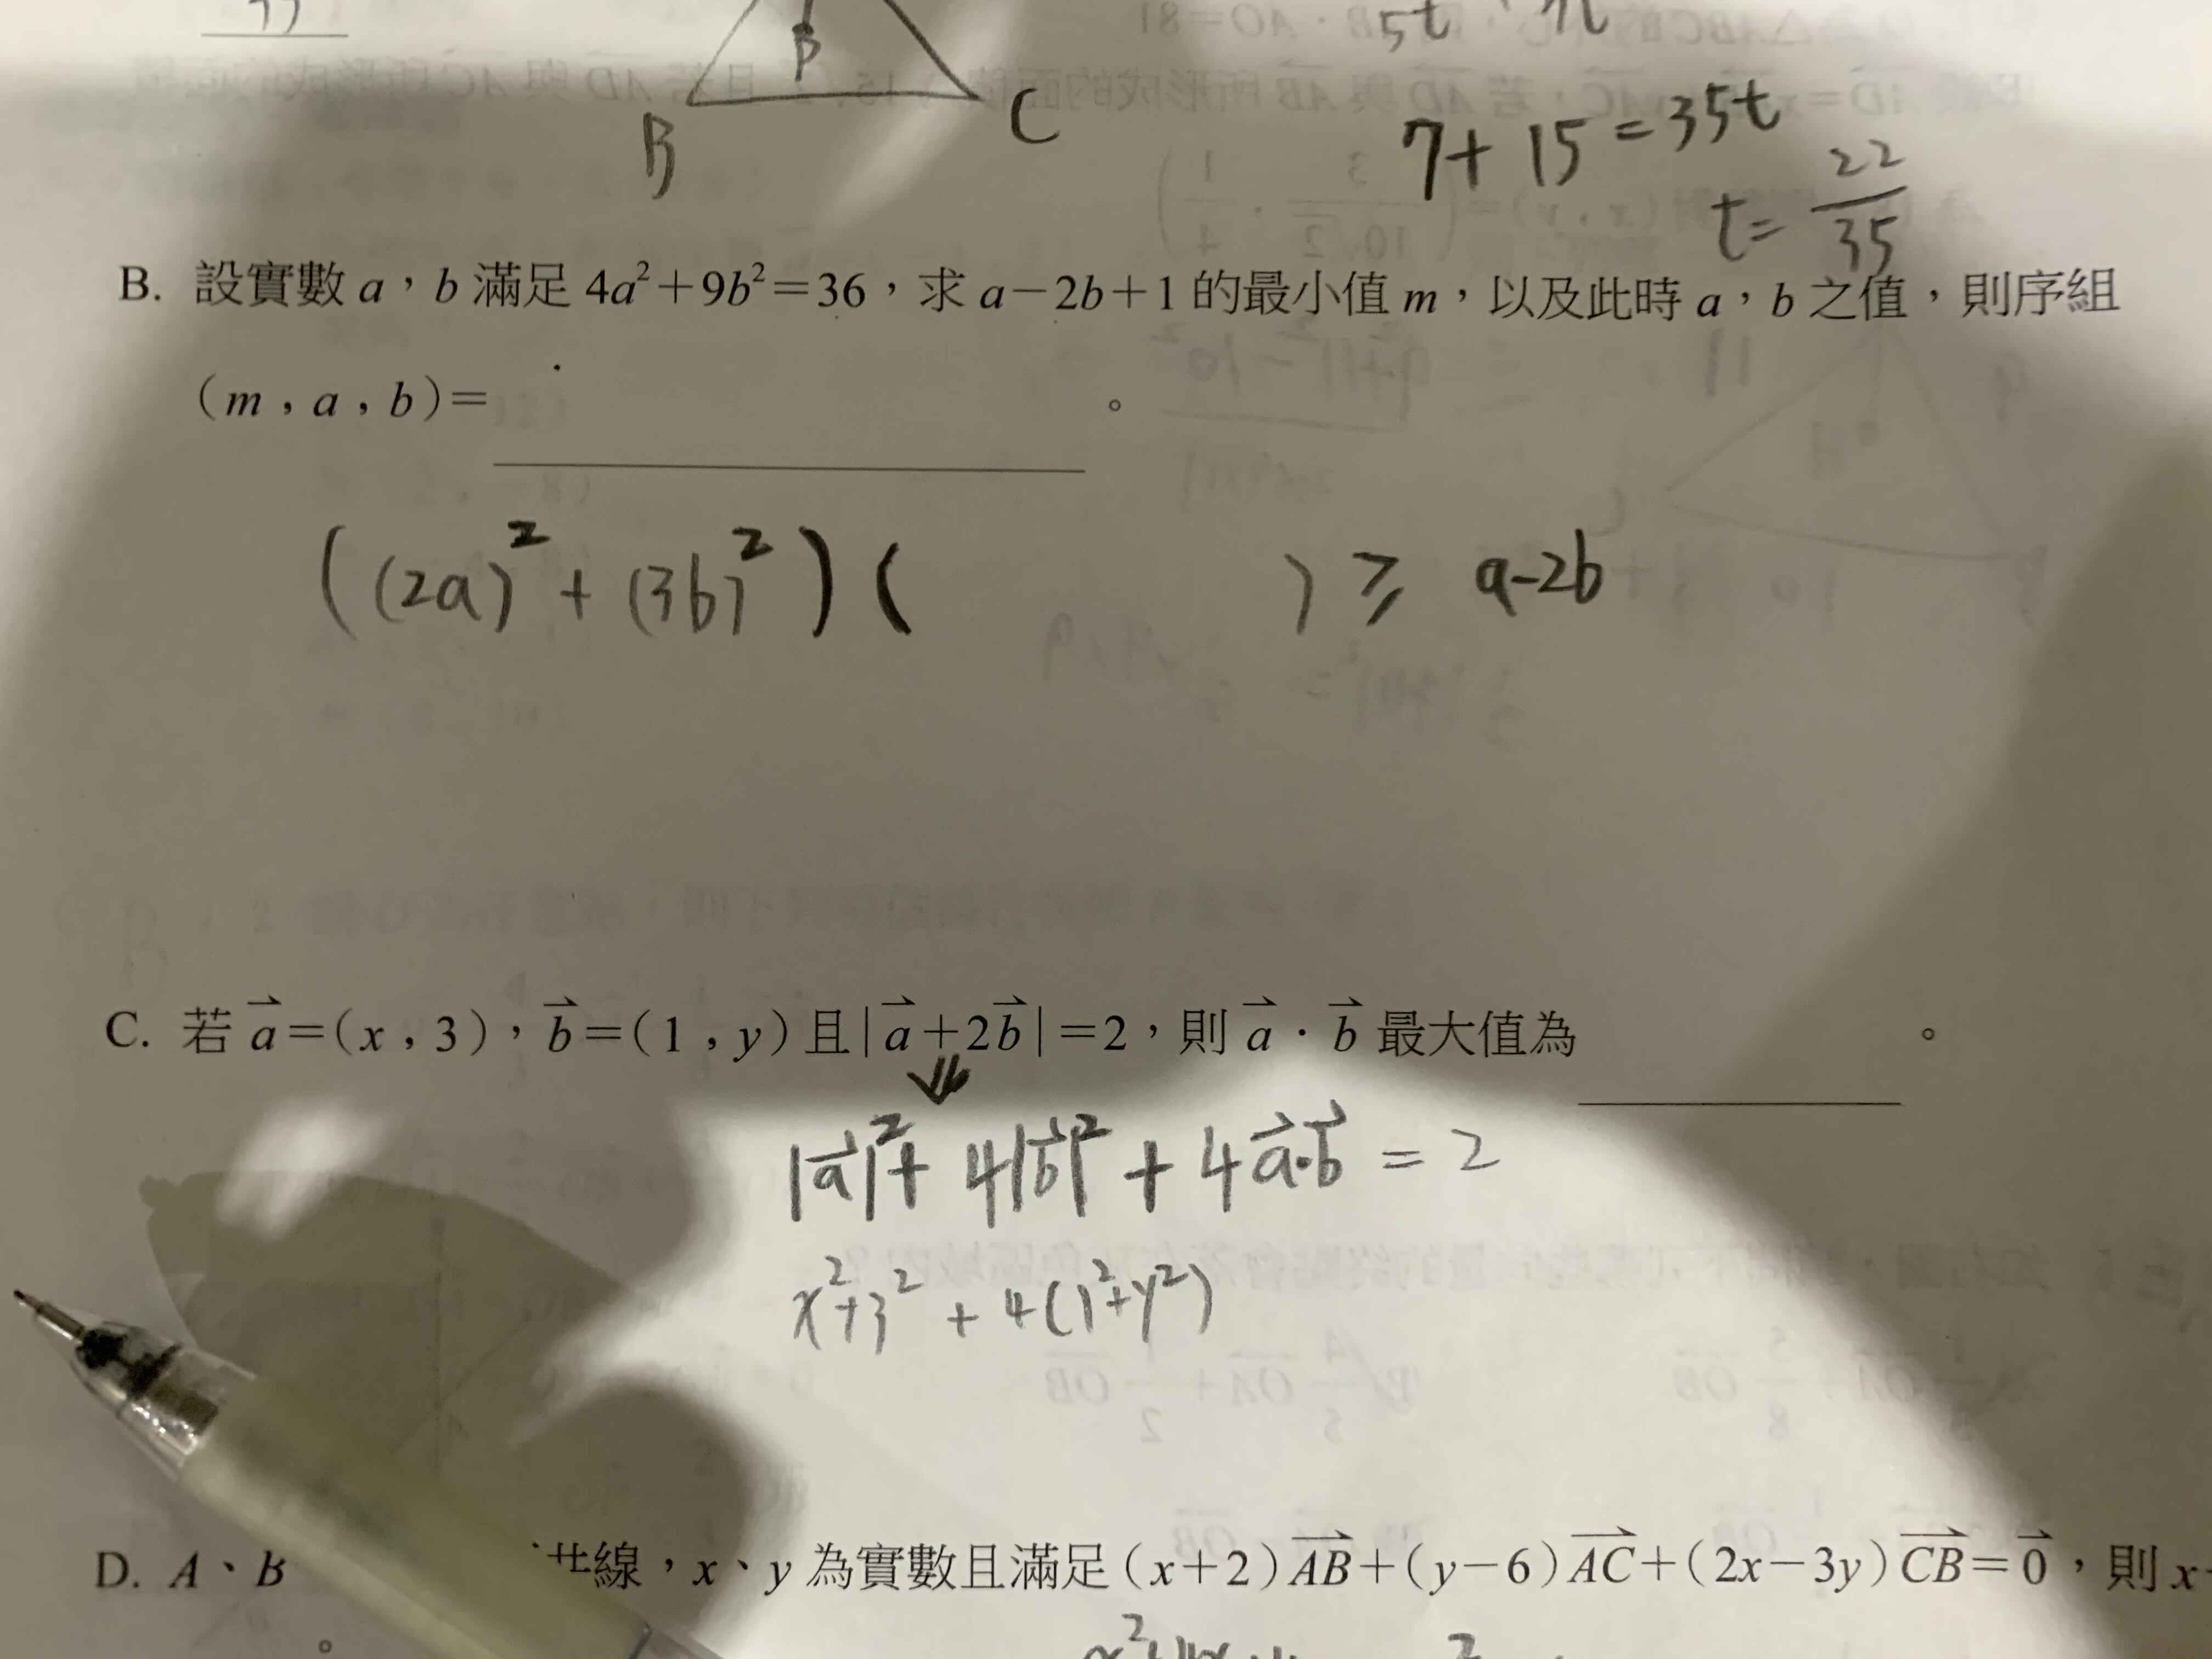 B
C
P
5t
7+15=35t
t=22/35
B. 設實數 a，b 滿足 4a²+9b²=36，求 a−2b+1 的最小值 m，以及此時 a，b 之值，則序組
(m，a，b)= 。
((2a)²+(3b)²)( ) ≥ a-2b
C. 若 a⃗=(x，3)，b⃗=(1，y) 且|a⃗+2b⃗|=2，則 a⃗·b⃗ 最大值為 。
|a⃗|²+4|b⃗|²+4a⃗·b⃗=2
x²+3²+4(1²+y²)
D. A、B 共線，x、y 為實數且滿足 (x+2)AB⃗+(y−6)AC⃗+(2x−3y)CB⃗=0⃗，則 x
。